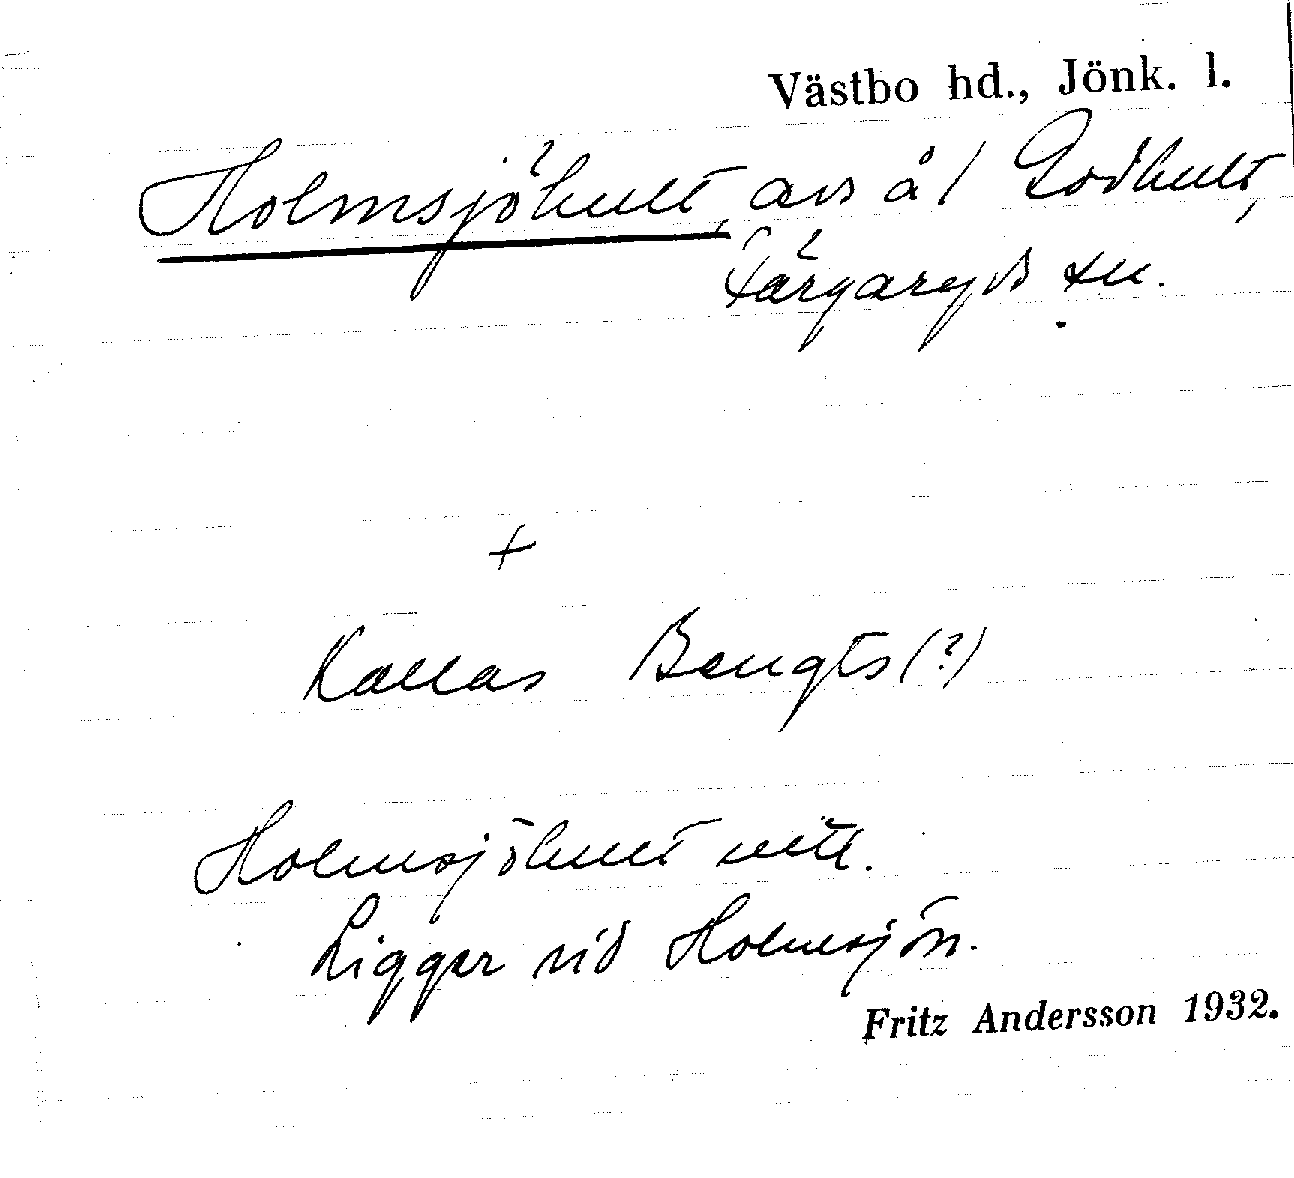 Västbo hd., Jönk. l.
Holmsjöhult, avs å / Godhult,
Färgaryds sn.
+
Kallas Bengts (?)
Holmsjöhult
Ligger vid Holmsjön.
Fritz Andersson 1932.